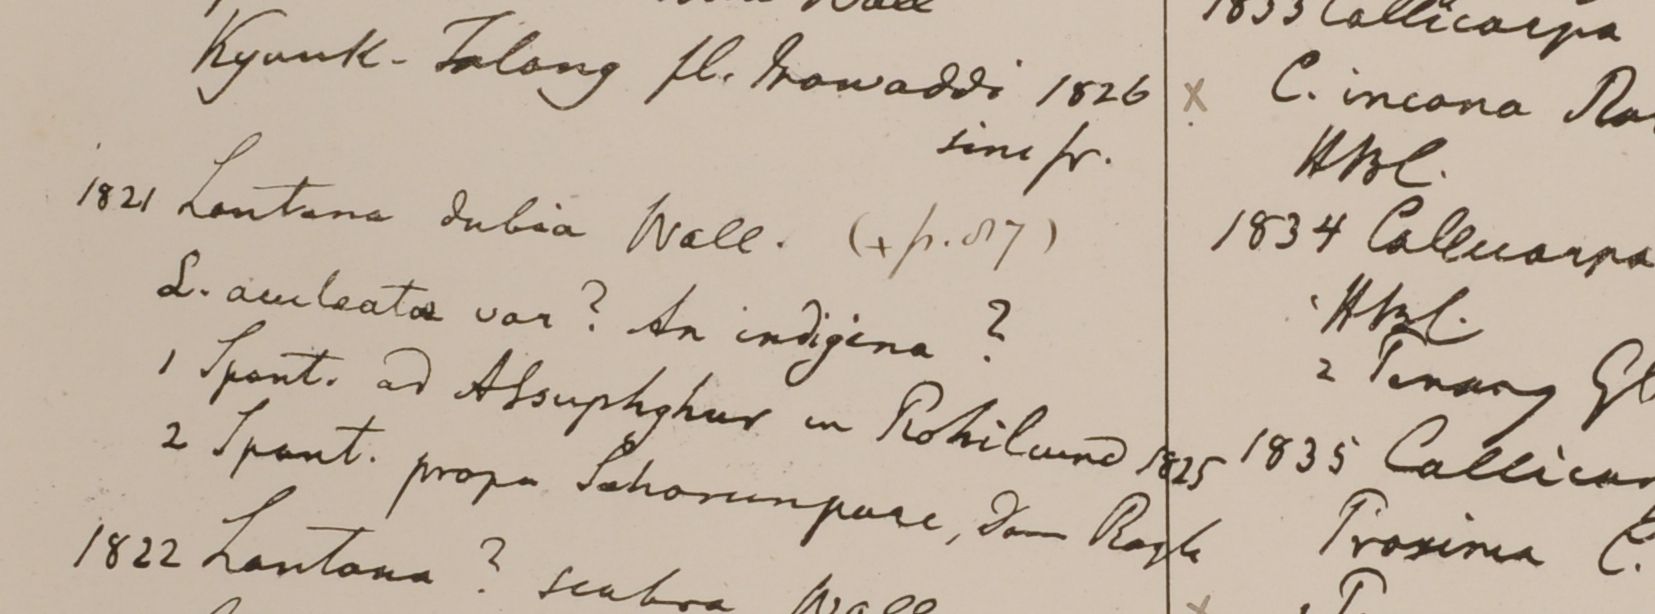 Wall
Kyouk-Talong fl. Irawaddi 1826
sine fr.
1821 Lantana dubia Wall. (+ p. 87)
L. aculeata var? An indigena?
1 Spont. ad Afsuphghur in Rohilcund 1825
2 Spont. prope Saharunpore, Dom Royle
1822 Lantana? scabra Wall
1833 Callicarpa
x C. incana
HBC.
1834 Callicarpa
HBC.
2 Penang
1835
Proxima C.